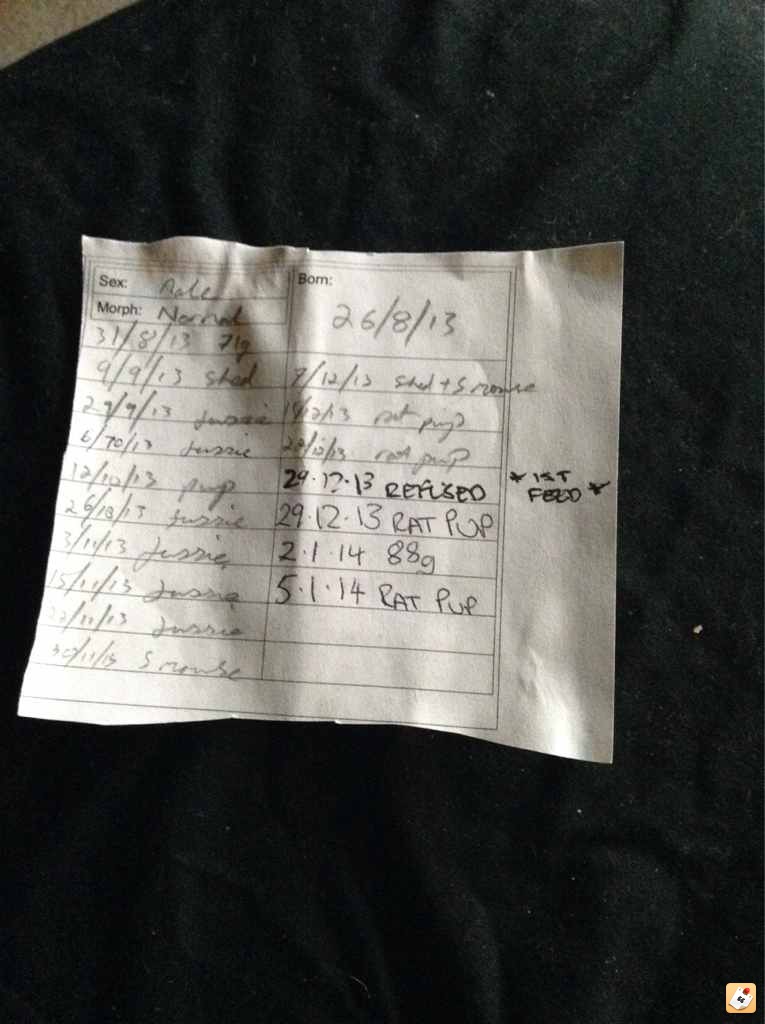 Sex: Male
Morph: Normal
31/8/13 71g
9/9/13 shed
29/9/13 fuzzie
6/10/13 fuzzie
12/10/13 pup
26/10/13 fuzzie
3/11/13 fuzzie
15/11/13 fuzzie
22/11/13 fuzzie
30/11/13 S mouse
Born:
26/8/13
7/12/13 shed + S mouse
/12/13 rat pup
/12/13 rat pup
29.12.13 REFUSED
* 1ST FEED *
29.12.13 RAT PUP
2.1.14 88g
5.1.14 RAT PUP